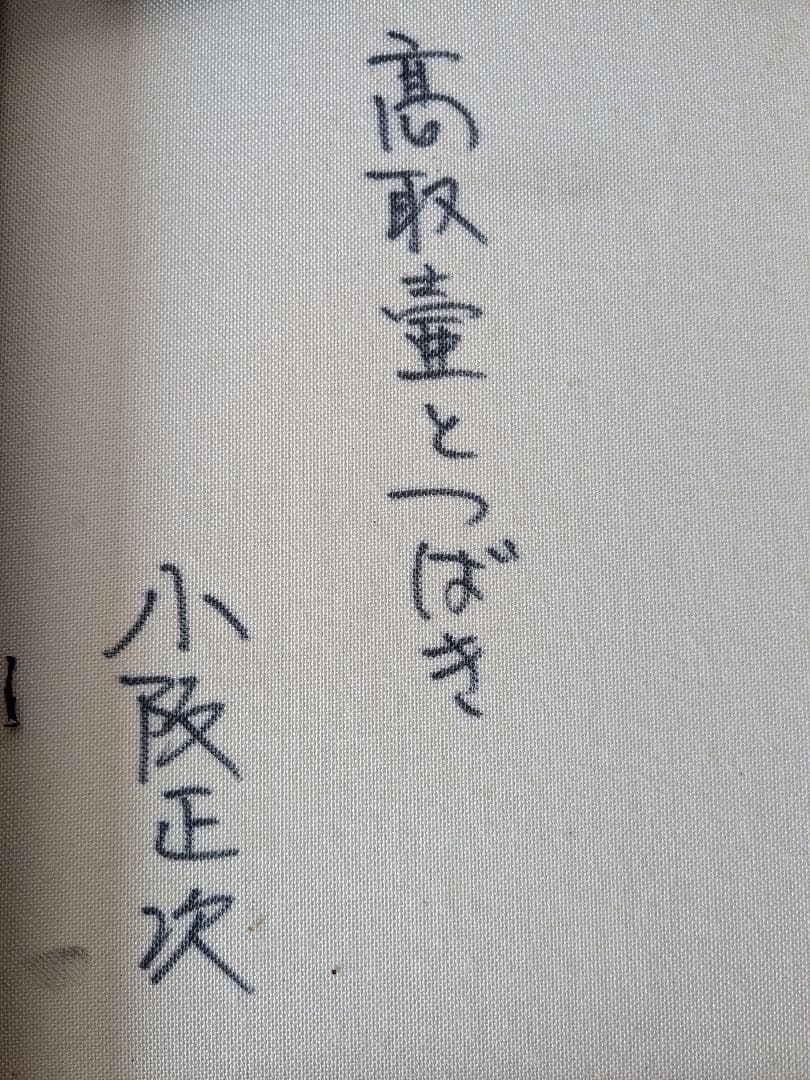 高取壷とつばき
小阪正次